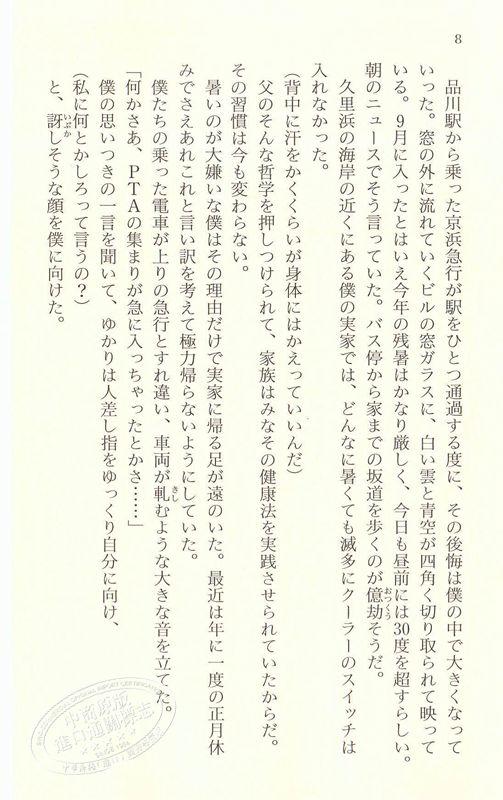 8
品川駅から乗った京浜急行が駅をひとつ通過する度に、その後悔は僕の中で大きくなって
いった。窓の外に流れていくビルの窓ガラスに、白い雲と青空が四角く切り取られて映って
いる。9月に入ったとはいえ今年の残暑はかなり厳しく、今日も昼前には30度を超すらしい。
朝のニュースでそう言っていた。バス停から家までの坂道を歩くのが億劫そうだ。
おつくう
久里浜の海岸の近くにある僕の実家では、どんなに暑くても滅多にクーラーのスイッチは
入れなかった。
（背中に汗をかくくらいが身体にはかえっていいんだ）
父のそんな哲学を押しつけられて、家族はみなその健康法を実践させられていたからだ。
その習慣は今も変わらない。
暑いのが大嫌いな僕はその理由だけで実家に帰る足が遠のいた。最近は年に一度の正月休
みでさえあれこれと言い訳を考えて極力帰らないようにしていた。
僕たちの乗った電車が上りの急行とすれ違い、車両が軋むような大きな音を立てた。
きし
「何かさあ、PTAの集まりが急に入っちゃったとかさ……」
僕の思いつきの一言を聞いて、ゆかりは人差し指をゆっくり自分に向け、
（私に何とかしろって言うの？）
と、訝しそうな顔を僕に向けた。
いぶか
中商原版
進口通關標誌